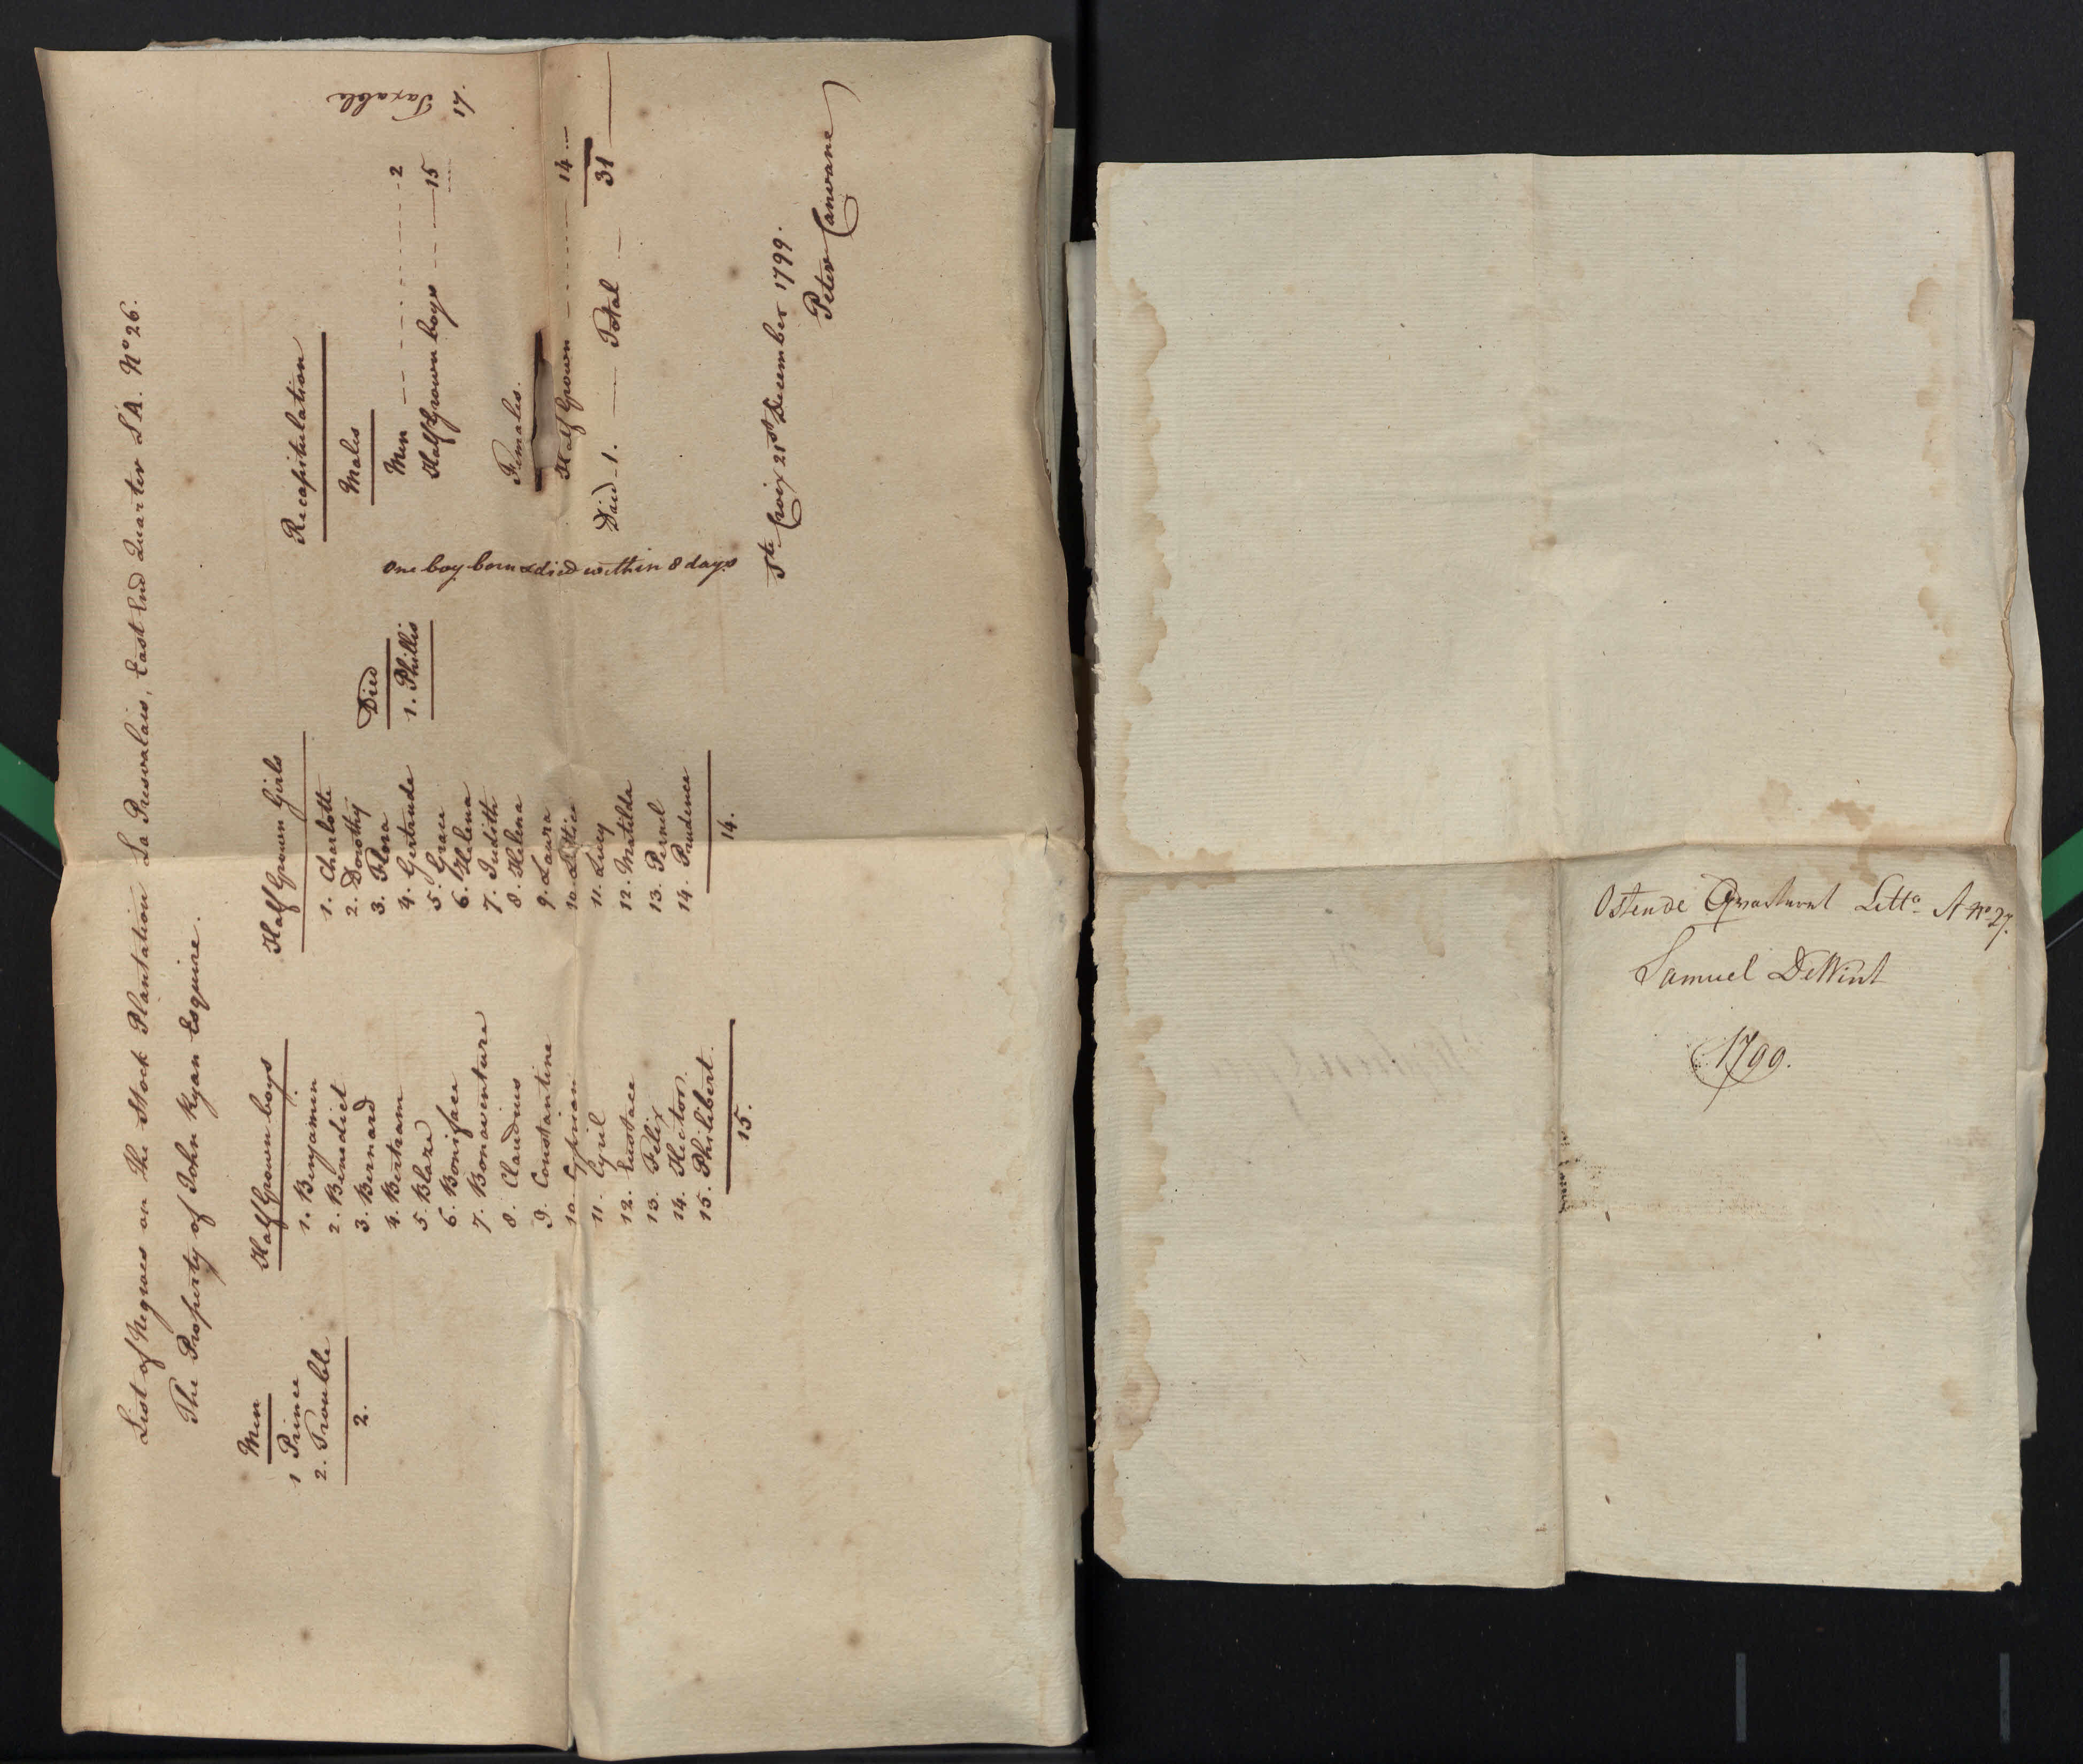 List of Negroes on the Stock Plantation La Presvalais, East End Quarter L'A. No 26.
The Property of John Ryan Esquire.
Men
1 Prince
2. Trouble
2.
Half Grown boys
1. Benjamin
2. Benedict
3. Bernard
4. Bertram
5. Blaze
6. Boniface
7. Bonaventure
8. Claudius
9. Constantine
10. Cyprian
11. Cyril
12. Eustace
13. Felix
14. Hector
15. Philibert.
15.
Half Grown Girls
1. Charlotte
2. Dorothy
3. Flora
4. Gertrude
5. Grace
6. Helena
7. Judith
8. Helena
9. Laura
10. Lettice
11. Lucy
12. Matilda
13. Pernel
14. Prudence
14.
Died
1. Phillis
One boy born & died within 8 days
Recapitulation
Males
Men 2
Half Grown boys 15
Taxable
17.
Females.
Half Grown 14
Died 1. Total 31
Ste Croix 21st December 1799.
Peter Canvane
Ostende Qvarteert Litta A No 27.
Samuel DeWint
1799.